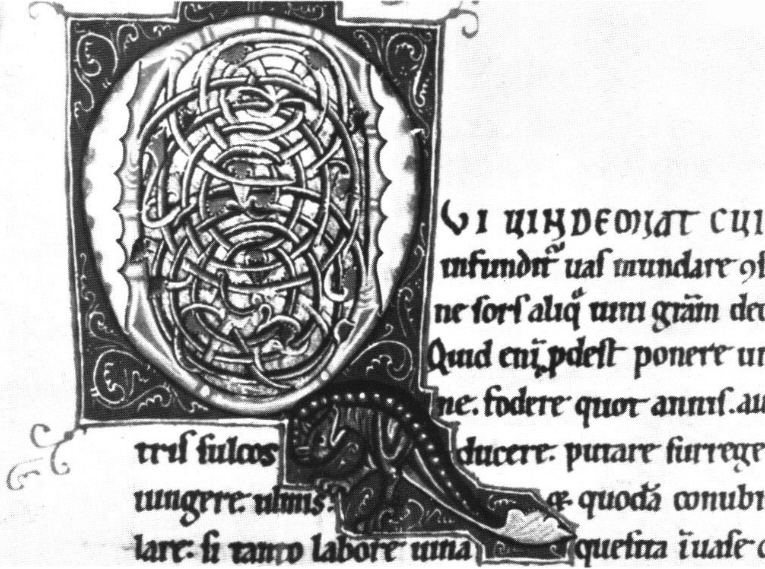 QVI UINDEMIAT CUI
infundit᷑ uaſ mundare ꝯſ
ne ſorſ aliqͣ uini gr̄am dec
Quid eni̅ ꝓdeſt ponere ui
ne. fodere quot anniſ. au
triſ ſulcos ducere. putare ſurrege
iungere ulmis. &amp; quodā conubi
lare. ſi tanto labore uina queſita ĩuaſe c